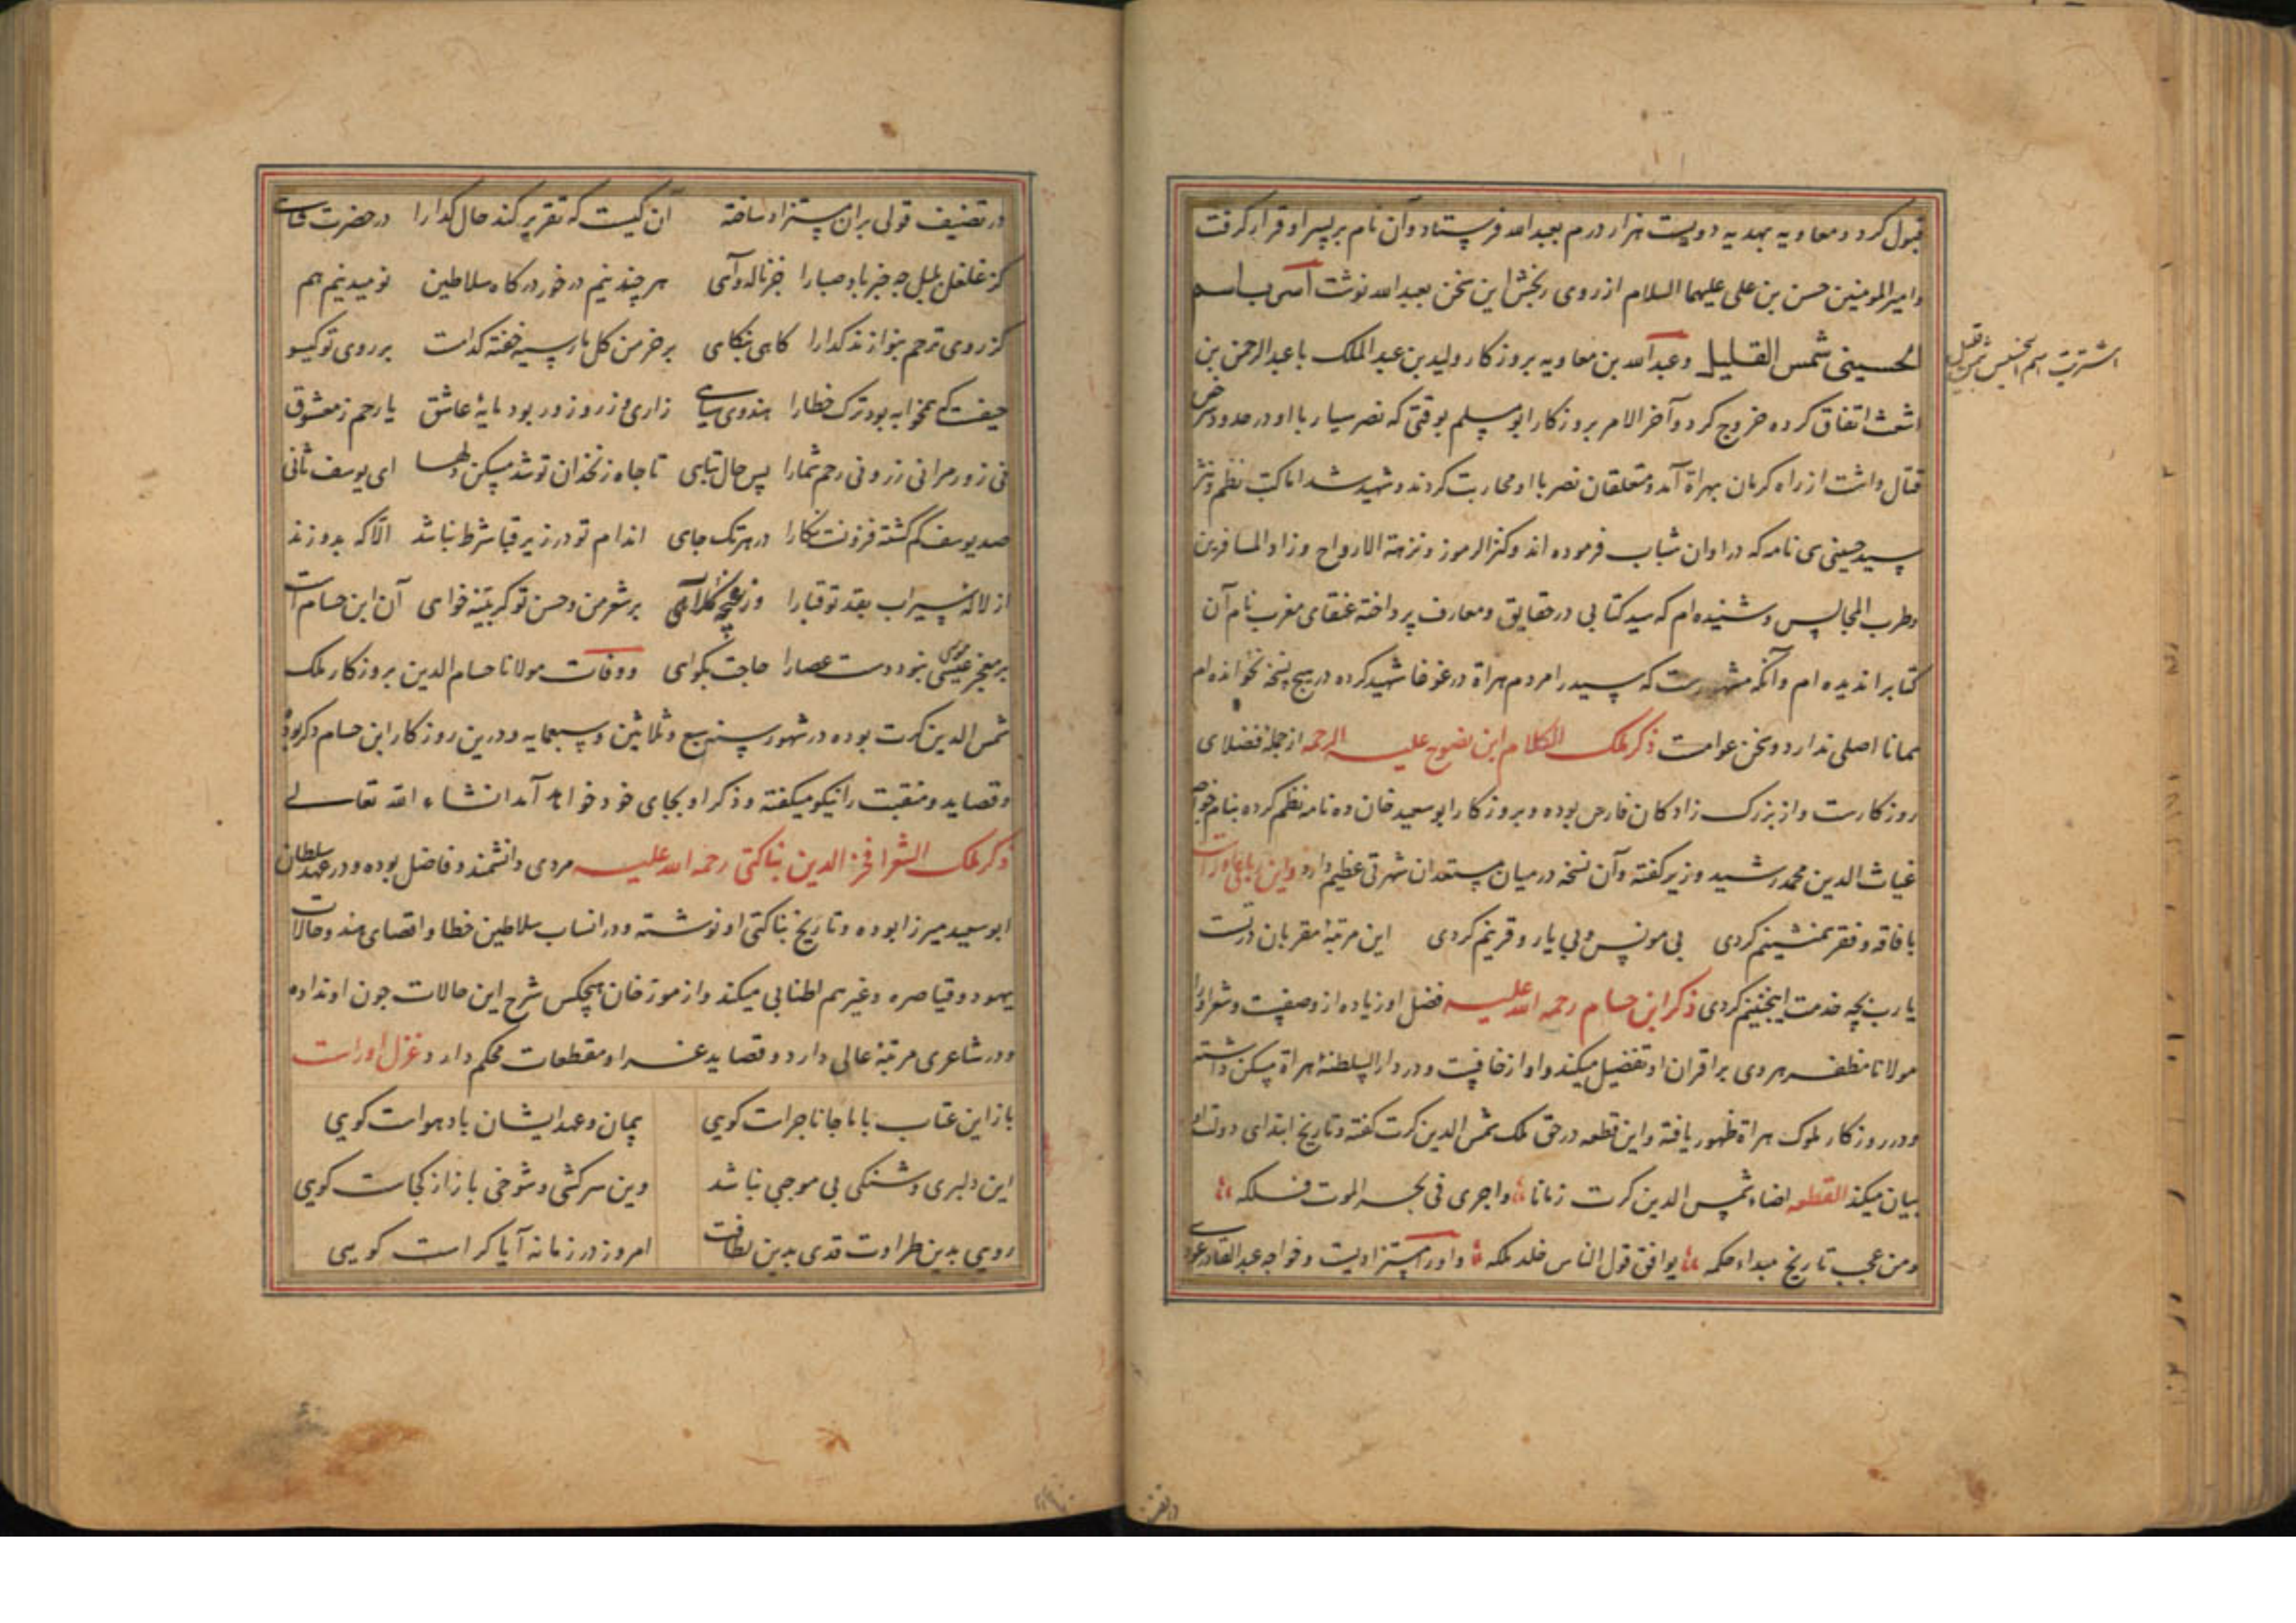 قبول کرد و معاویه بهدیه دویست هزار درم بعبدالله فرستاد و آن نام بر پسر او قرار گرفت
و امیر المومنین حسن بن علی علیهما السلام از روی رنجش این سخن بعبدالله نوشت اشتریت اسم
الحسینی شمس القلیل و عبدالله بن معاویه بروزکار ولید بن عبد الملک با عبد الرحمن بن
اشعث اتفاق کرده خروج کرد و آخر الامر بروزکار ابو مسلم بوقتی که نصر سیار با او در حدود
قتال داشت از راه کرمان بهراة آمد و متعلقان نصر با او محاربت کردند و شهید شد اما کتب نظم و نثر
سید حسینی سی نامه که در اوان شباب فرموده اند و کنز الرموز و نزهة الارواح و زاد المسافرین
و طرب المجالس و شنیده ام که سید کتابی در حقایق و معارف پرداخته عنقای مغرب نام آن
کتابرا ندیده ام و آنکه مشهورست که سید را مردم هراة در غوغا شهید کرده در هیچ نسخه نخوانده ام
همانا اصلی ندارد و سخن عوامست ذکر ملک الکلام ابن نصوح علیه الرحمه از جمله فضلای
روزکارست و از بزرک زادکان فارس بوده و بروزکار ابو سعید خان ده نامه نظم کرده بنام خواجه
غیاث الدین محمد رشید وزیر کفته و آن نسخه در میان مستعدان شهرتی عظیم دارد و این رباعی اوراست
با فاقه و فقر همنشینم کردی بی مونس و بی یار و قرینم کردی این مرتبهٔ مقربان در تست
یا رب بچه خدمت اینچنینم کردی ذکر ابن حسام رحمه الله علیه فضل او زیاده از وصفیت و شعر او را
مولانا مظفر هروی بر اقران او تفضیل میکند و او از خافیست و در دار السلطنهٔ هراة مسکن داشته
و در روزکار ملوک هراة ظهور یافته و این قطعه در حق ملک شمس الدین کرت کفته و تاریخ ابتدای دولت او
بیان میکند القطعه اضاء بشمس الدین کرت زماننا واجری فی بحر الموت فلکه
ومن عجب تاریخ مبداء حکمه یوافق قول الناس خلد ملکه و او را مستزادیست و خواجه عبد القادر عودی
اشتریت اسم الحسینی شمس القلیل
در تصنیف قولی بران مستزاد ساخته آن کیست که تقریر کند حال کدا را در حضرت شاهی
کز غلغل بلبل چه خبر باد صبا را جز ناله و آهی هر چند نیم در خور درکاه سلاطین نومید نیم هم
کز روی ترحم بنوازند کدا را کاهی بنکاهی بر خرمن کل مار سیه خفته کدامست بر روی تو کیسو
حیفست که همخوابه بود ترک خطا را هندوی سیاهی زاری و زر و زور بود مایهٔ عاشق یا رحم ز معشوق
نی زور مرا نی زر و نی رحم شما را پس حال تباهی تا چاه زنخدان تو شد مسکن دلها ای یوسف ثانی
صد یوسف کم کشته فزونست نکارا در هر تک چاهی اندام تو در زیر قبا شرط نباشد الّا که بدوزند
از لاله سیراب بقد تو قبا را وز غنچه کلاهی بر شعر من و حسن تو کر بینه خواهی آن ابن حسام است
بر معجز موسی عیسی بنود دست عصا را حاجت بکواهی و وفات مولانا حسام الدین بروزکار ملک
شمس الدین کرت بوده در شهور سنه سبع و ثلاثین و سبعمایه و درین روزکار ابن حسام دکر بوده
و قصاید و منقبت را نیکو میکفته و ذکر او بجای خود خواهد آمد انشاء الله تعالی
ذکر ملک الشعرا فخر الدین بناکتی رحمه الله علیه مردی دانشمند و فاضل بوده و در عهد سلطان
ابو سعید میرزا بوده و تاریخ بناکتی او نوشته و در انساب سلاطین خطا و اقصای هند و حالات
یهود و قیاصره و غیرهم اطنابی میکند و از مورخان هیچکس شرح این حالات چون او نداده
و در شاعری مرتبهٔ عالی دارد و قصاید غرا و مقطعات محکم دارد و غزل اوراست
باز این عتاب با ما جانا چراست کویی پیمان و عهد ایشان باد هواست کویی
این دلبری و شنکی بی موجبی نباشد وین سرکشی و شوخی باز از کجاست کویی
رویی بدین طراوت قدی بدین لطافت امروز در زمانه آیا کراست کویی